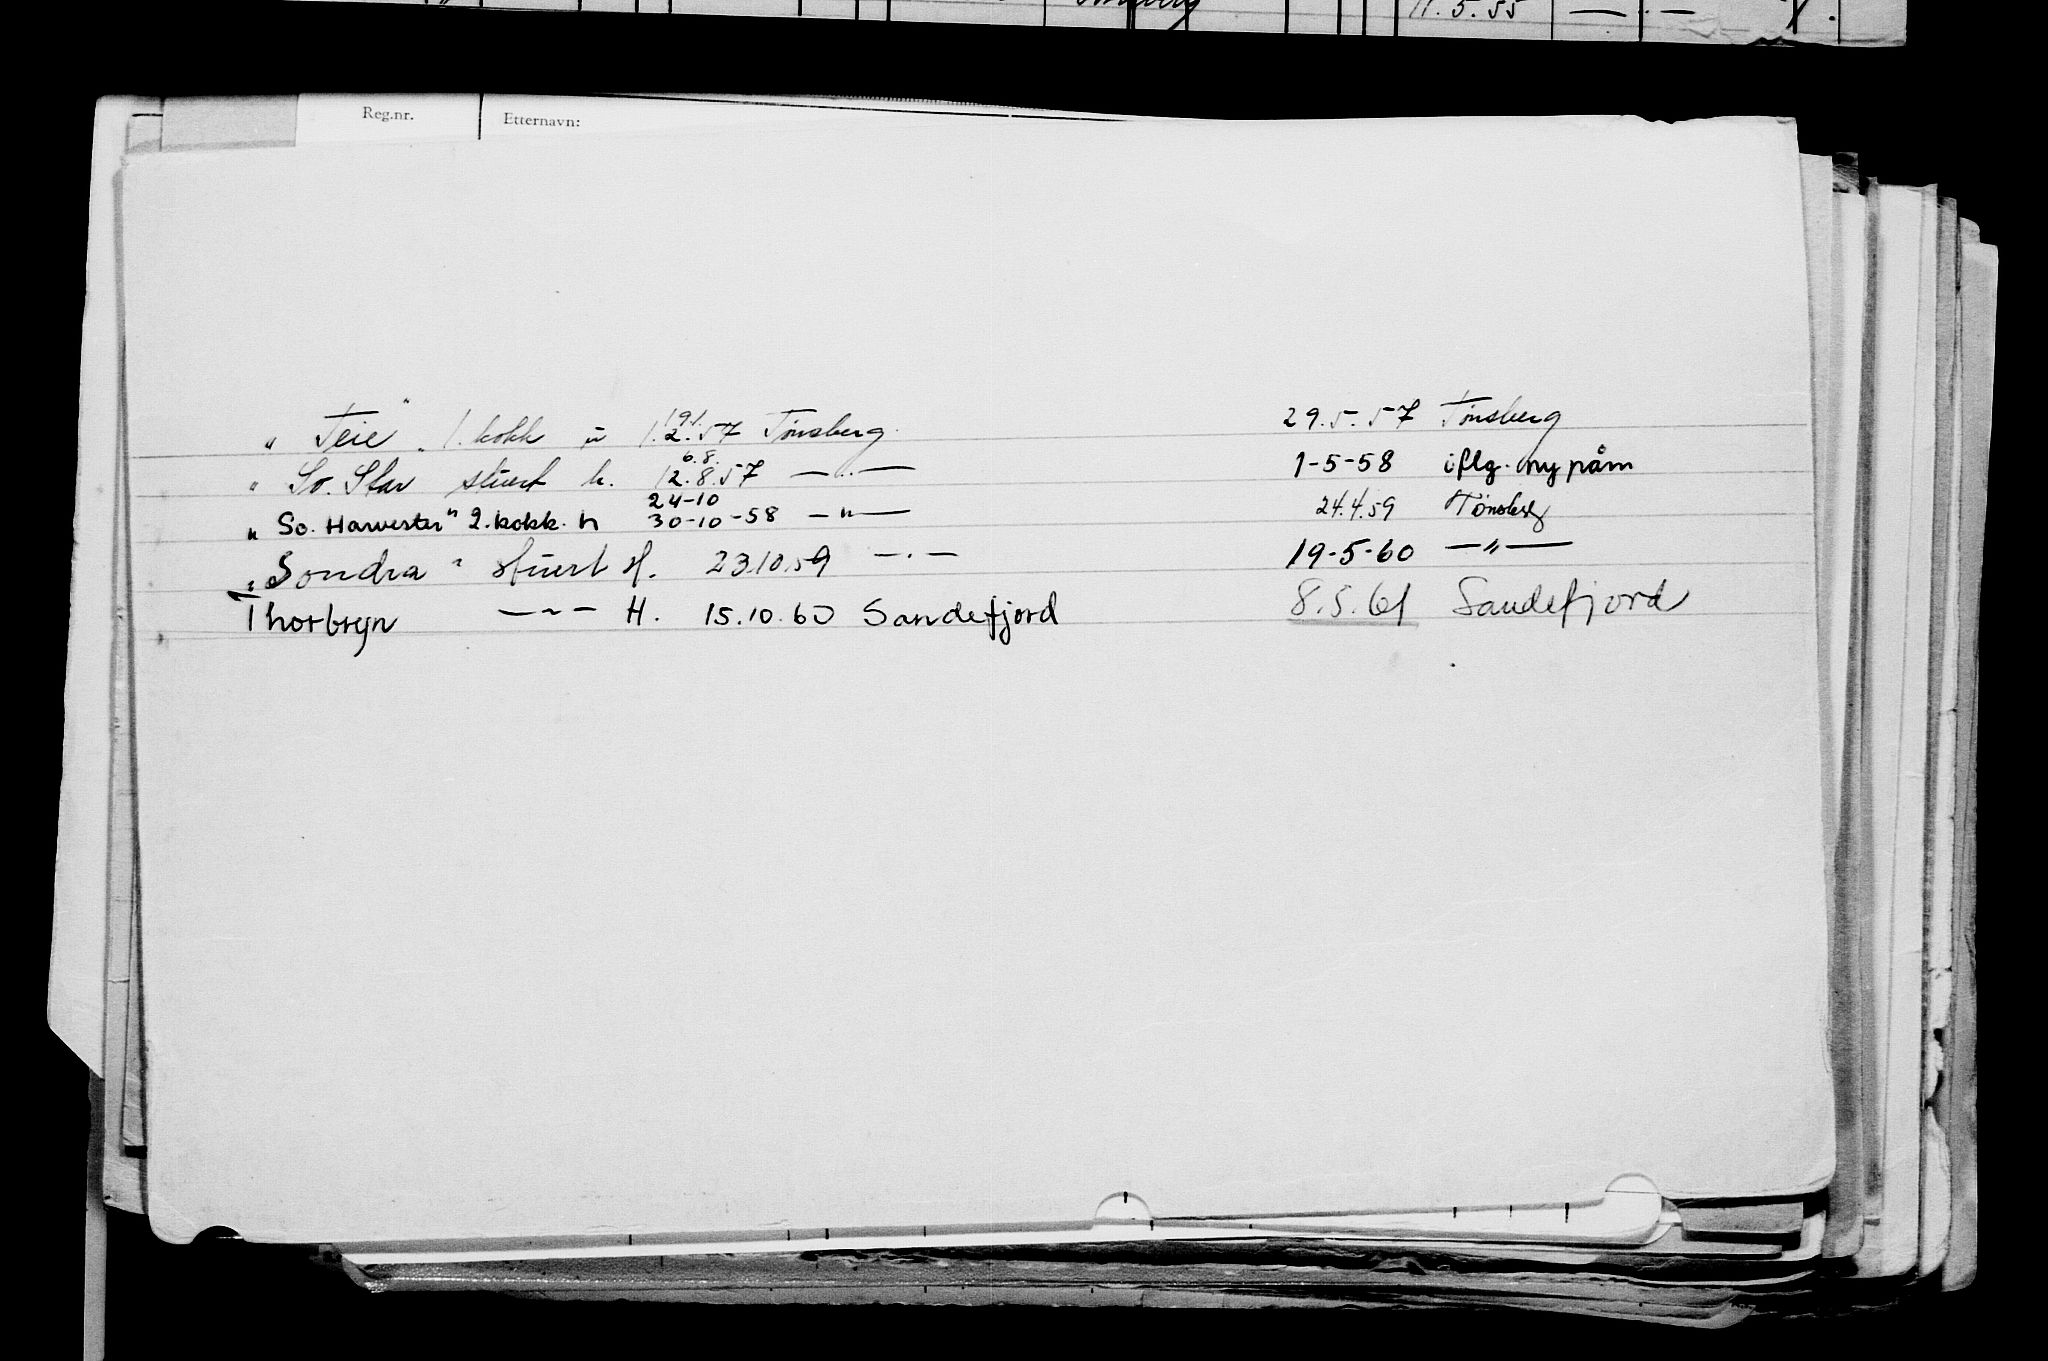 11.5.55 — . —
Reg.nr. Etternavn:
19/1
" Teie " 1. kokk u 1.2.57 Tønsberg. 29.5.57 Tønsberg
6.8.
" So. Star stuert h. 12.8.57 — " — 1-5-58 iflg. ny påm
24-10
" So. Harvester " 2. kokk. h 30-10-58 — " — 24.4.59 Tønsberg
" Sondra " stuert H. 23.10.59 — " — 19-5-60 — " —
Thorbryn — " — H. 15.10.60 Sandefjord 8.5.61 Sandefjord